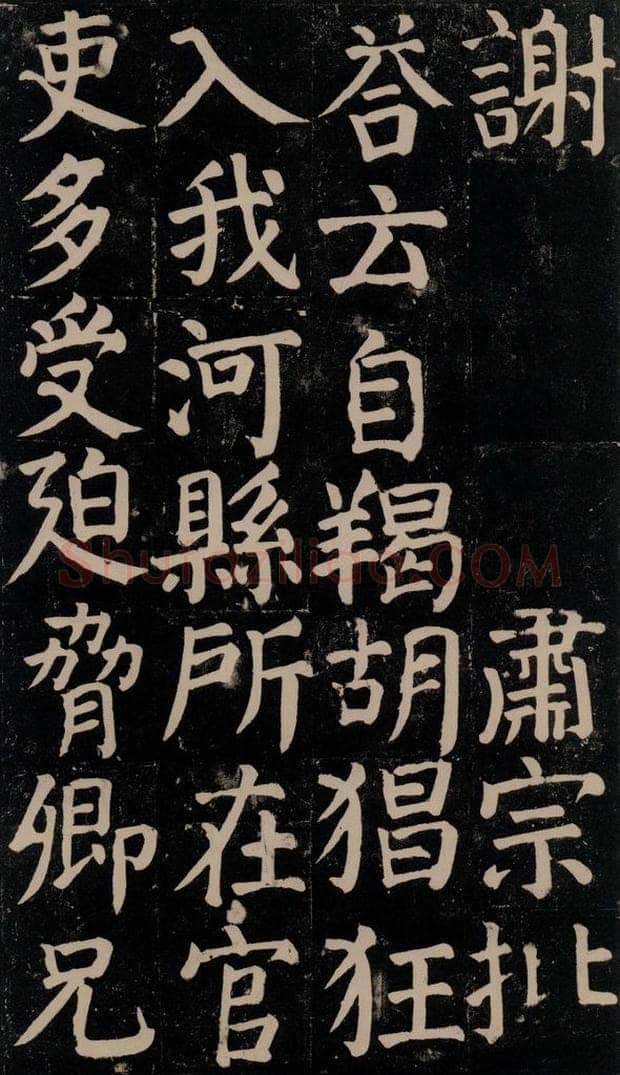 謝 肅宗批
荅云自羯胡猖狂
入我河縣所在官
吏多受廹脅卿兄
Shufaziliao.COM